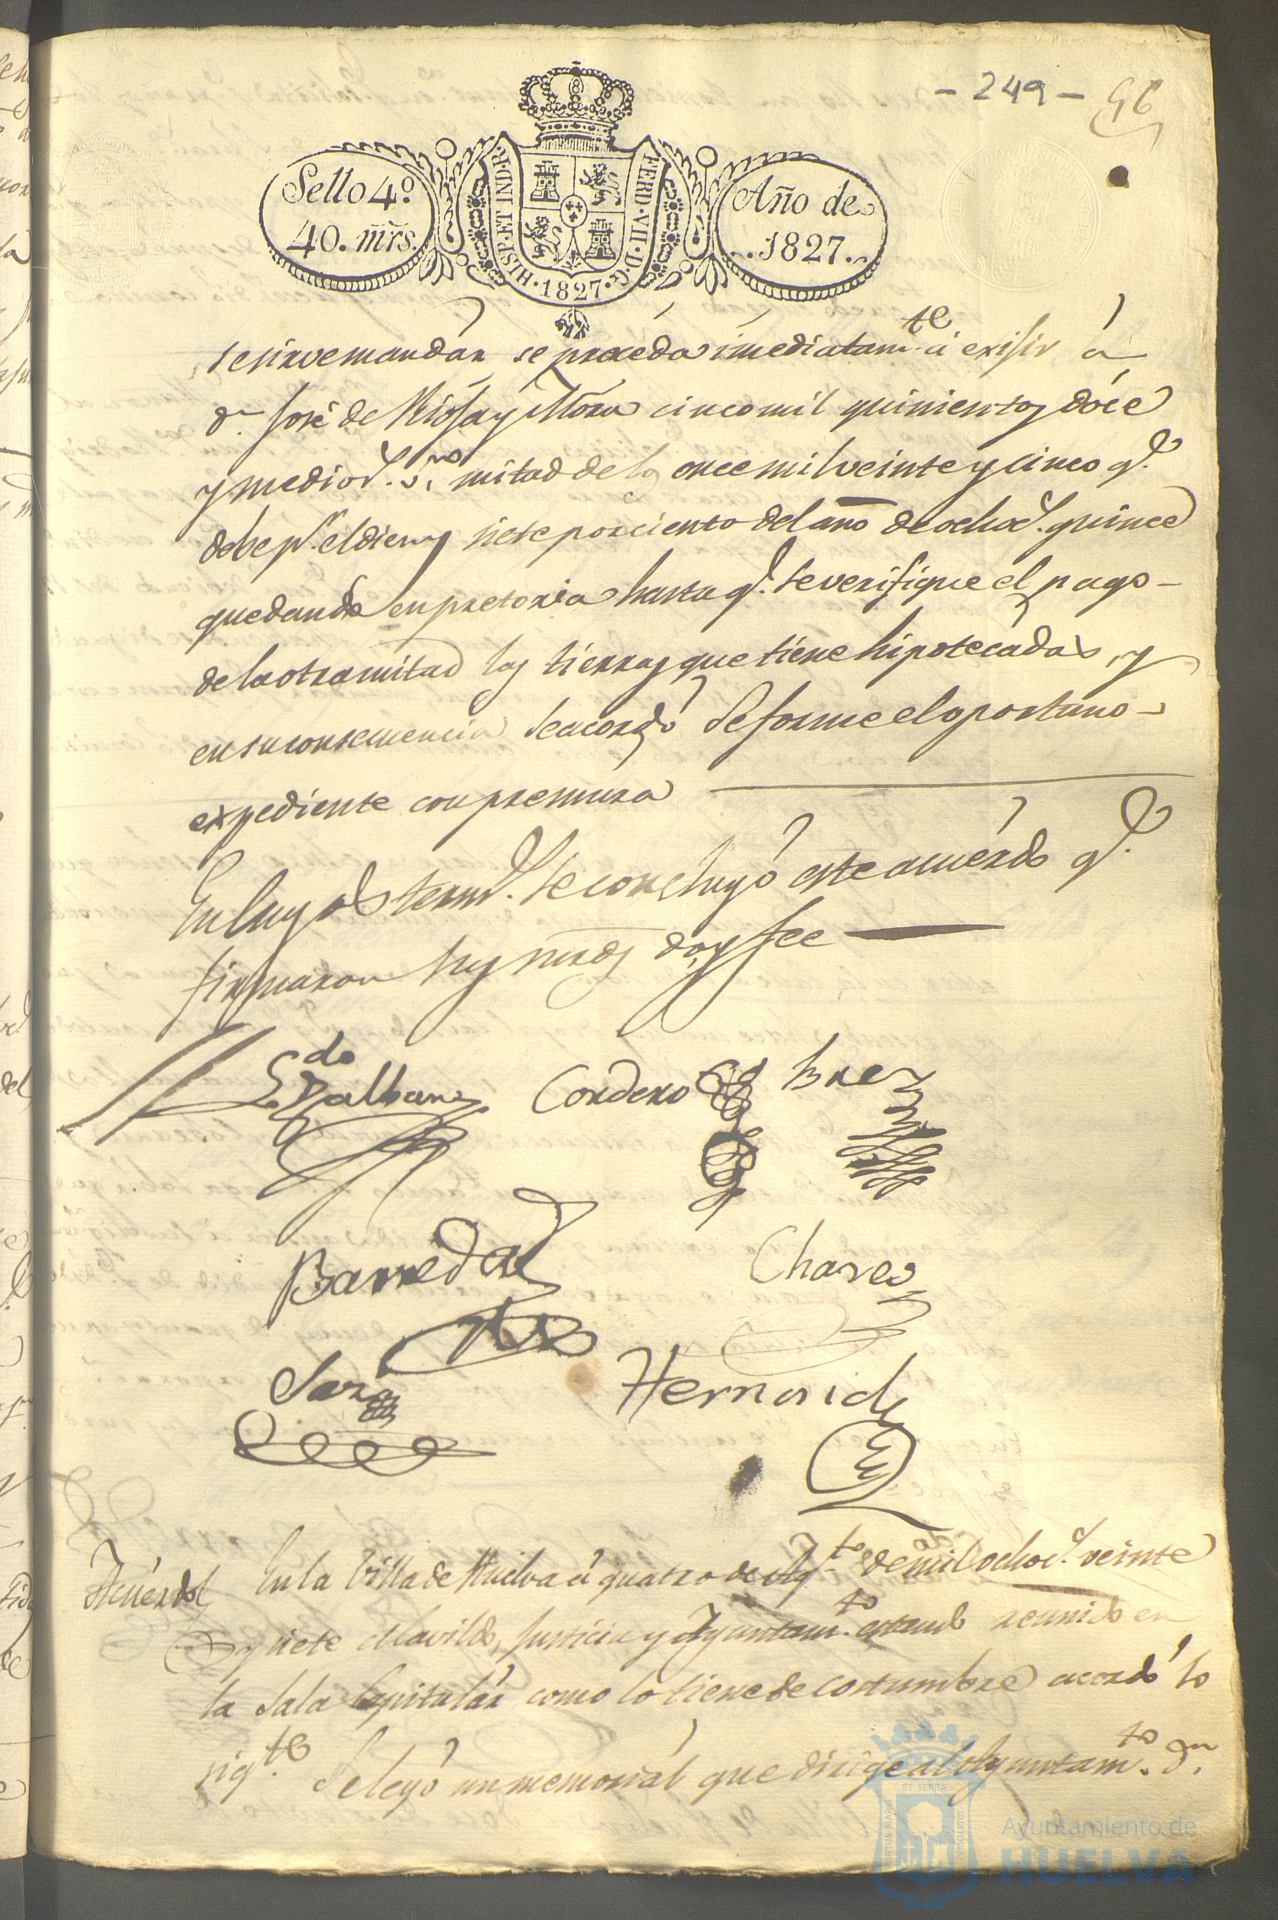 - 249 - 96
Sello 4º
40. mrs.
HISP. ET IND. R.
FERD. VII. D. G.
1827
Año de
1827
se sirve mandár se procéda imediatamte. á exisir á
dn José de Riosa y Mora cinco mil quinientos dóce
y medio rs. vno mitad de los once mil veinte y cinco q.e
debe pr. el diez y siete por ciento del año de ochocs. quince
quedando en pretoria hasta q.e se verifique el pago
de la otra mitad las tierras que tiene hipotecadas, y
en su consecuencia se acordó se forme el oportuno
expediente con premura
En cuyos term.s se concluyó este acuérdo q.e
firmaron sus mrds doy fee
Ldo
Cordero
Barreda
Chaves
Hernand
Acuérdo En la Villa de Huelva á quatro de Agto. de mil ochocs. veinte
y siete el Cavildo, Justicia y Ayuntamto. estando reunido en
la Sala Capitulár como lo tiene de costumbre acordó lo
sigte. Se leyó un memoriál que dirige al Ayuntamto. dn.
Ayuntamiento de
HUELVA